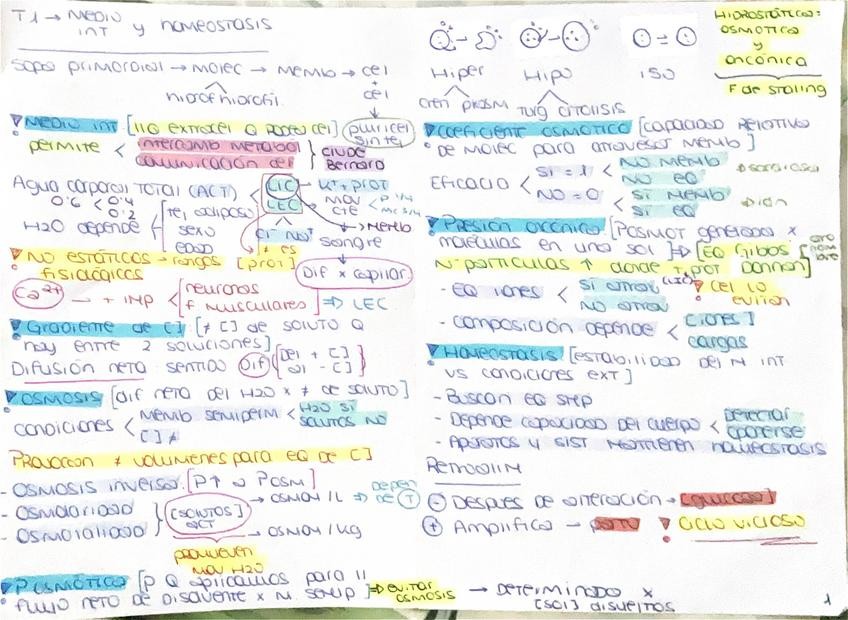 T1 → MEDIO INT y homeostasis
sopas primordial → molec → memb → cel
+ cel
hidrof hidrofil.
pluricel
MEDIO INT [llo extracel Q rodea cel]
permite < intercamb metabol
comunicación cel
} CLUDE BERNARD
Agua corporal TOTAL (ACT) < LIC — K+ + prot
0.6 < 0.4
0.2
LEC
Cl- Na+
→ memb
sangre
≠ es [prot]
Dif x capilar
H2O depende < tej adiposo
sexo
edad
NO estáticos → rangos fisiológicos
Ca2+ → + imp < neuronas
f musculares
⇒ LEC
Gradiente de [ ] [≠ [ ] de soluto Q
hay entre 2 soluciones]
Difusión neta: sentido Dif { del + [ ]
al - [ ]
OSMOSIS [dif neta del H2O x ≠ de soluto]
condiciones < memb semiperm < H2O SI
solutos NO
[ ] ≠
Provocan ≠ volúmenes para EQ de [ ]
- OSMOSIS inversa [P↑ a Posm]
- Osmolaridad
- Osmolalidad
} [solutos] ACT
→ osmol/L ⇒ depen de T
→ osmol/kg
promueven mov H2O
P OSMÓTICA [P Q aplicamos para //
flujo neto de disolvente x M. semip] ⇒ evitar OSMOSIS → DETERMINADO x [sol] disueltos
Hiper
Hipo
ISO
cren plasm
Turg citolisis
HIDROSTÁTICA:
OSMÓTICA
y
oncónica
F de starling
COEFICIENTE OSMÓTICO [capacidad relativa
de molec para atravesar memb]
EFICACIO < SI = 1 < NO memb
NO EQ
NO = 0 < SI memb
SI EQ
→ ion
Presión oncónica [Posmot generada x
moléculas en una sol] ⇒ [EQ Gibbs Donnan]
Nº partículas ↑ donde
- EQ iones < SI atrav
NO atrav
cel lo evitan
- composición depende < [iones]
cargas
Homeostasis [estabilidad del M int
vs condiciones ext]
- Buscan EQ smp
- Depende capacidad del cuerpo < Detectar
oponerse
- Aparatos y sist mantienen homeostasis
⊖ Después de alteración → [glucosa]
⊕ Amplifica → parto
Ciclo vicioso
1